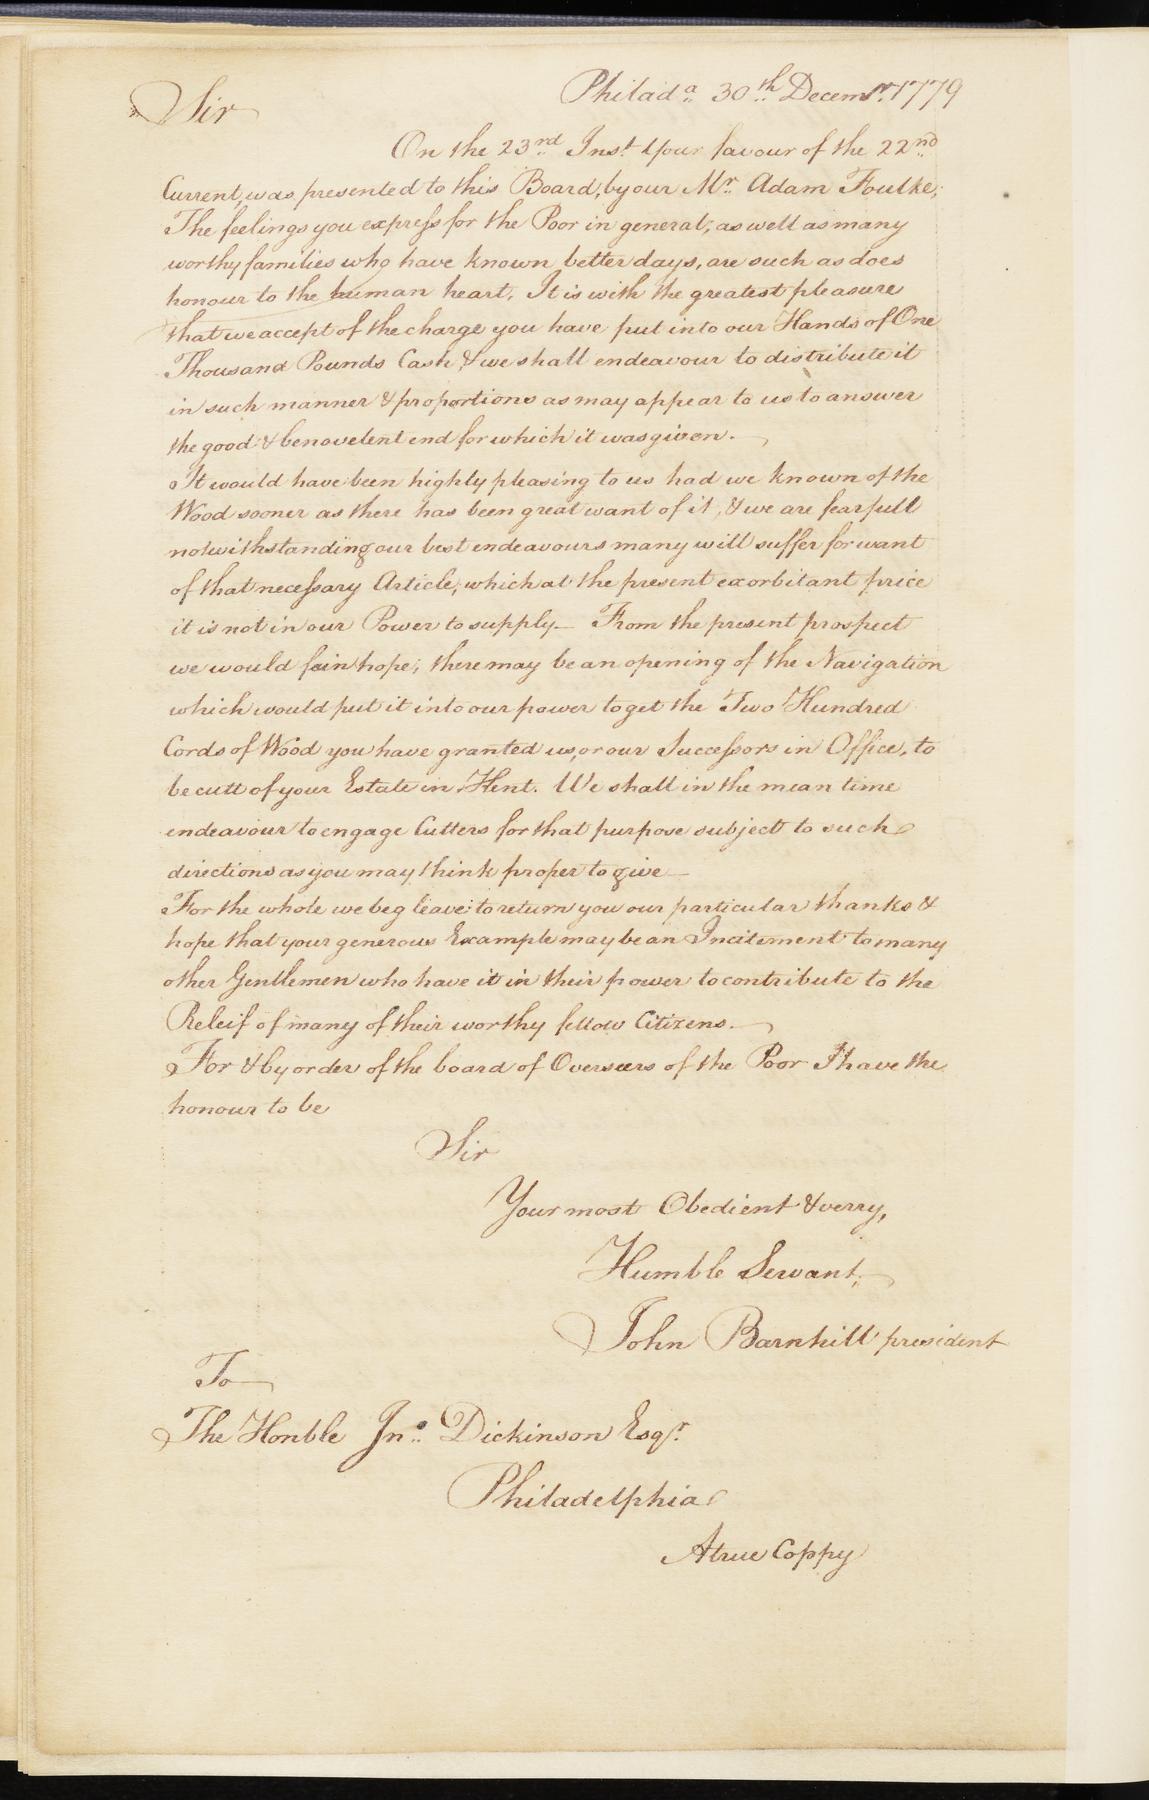 Philad.a 30.th Decemr. 1779
Sir
On the 23.rd Inst. Your favour of the 22.nd
Current, was presented to this Board, by our Mr. Adam Foulke;
The feelings you express for the Poor in general, as well as many
worthy families who have known better days, are such as does
honour to the human heart. It is with the greatest pleasure
that we accept of the charge you have put into our Hands of One
Thousand Pounds Cash, & we shall endeavour to distribute it
in such manner & proportions as may appear to us to answer
the good & benovelent end for which it was given.
It would have been highly pleasing to us had we known of the
Wood sooner as there has been great want of it, & we are fearfull
notwithstanding our best endeavours many will suffer for want
of that necessary Article, which at the present exorbitant price
it is not in our Power to supply — From the present prospect
we would fain hope, there may be an opening of the Navigation
which would put it into our power to get the Two Hundred
Cords of Wood you have granted us, or our Successors in Office, to
be cutt of your Estate in Kent. We shall in the mean time
endeavour to engage Cutters for that purpose subject to such
directions as you may think proper to give —
For the whole we beg leave to return you our particular thanks &
hope that your generous Example may be an Incitement to many
other Gentlemen who have it in their power to contribute to the
Releif of many of their worthy fellow Citizens.
For & by order of the board of Overseers of the Poor I have the
honour to be
Sir
Your most Obedient & verry,
Humble Servant,
John Barnhill president
To
The Honble Jn.o Dickinson Esqr.
Philadelphia
A true Coppy